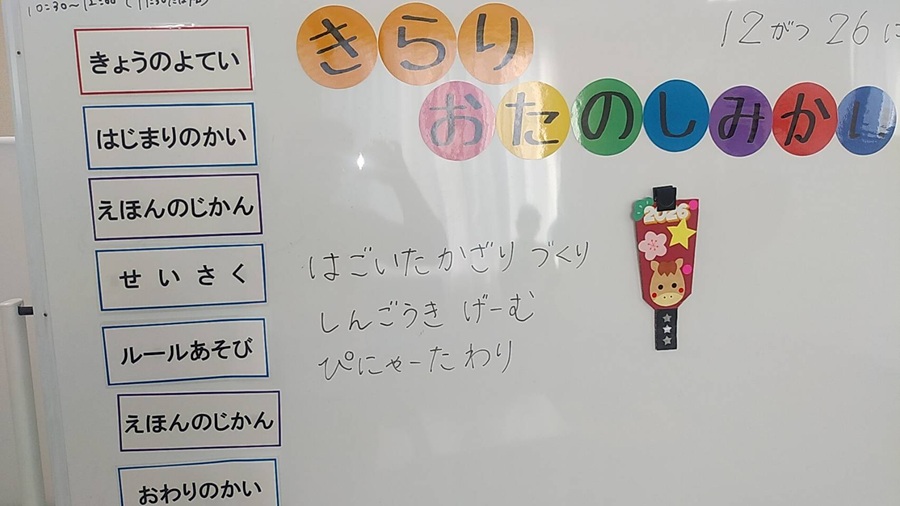 10:30~12:00
きらり
12がつ 26に
きょうのよてい
おたのしみかい
はじまりのかい
えほんのじかん
2026
はごいたかざりづくり
せいさく
しんごうきげーむ
ルールあそび
ぴにゃーたわり
えほんのじかん
おわりのかい